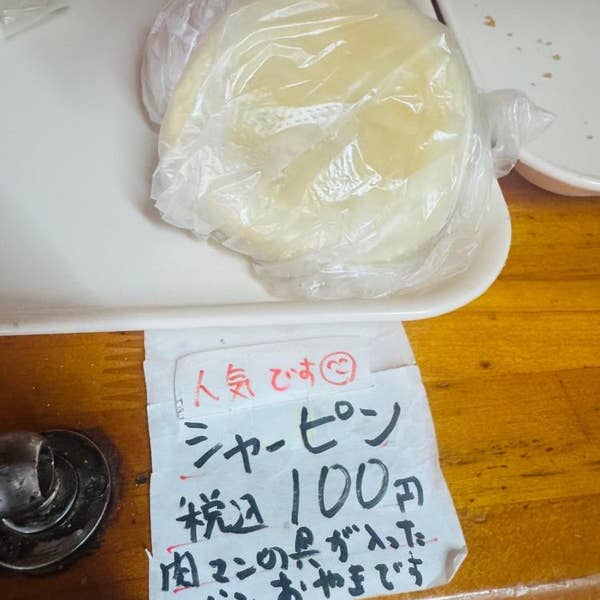 人気です
シャーピン
税込 100円
肉マンの具が入った
おやきです